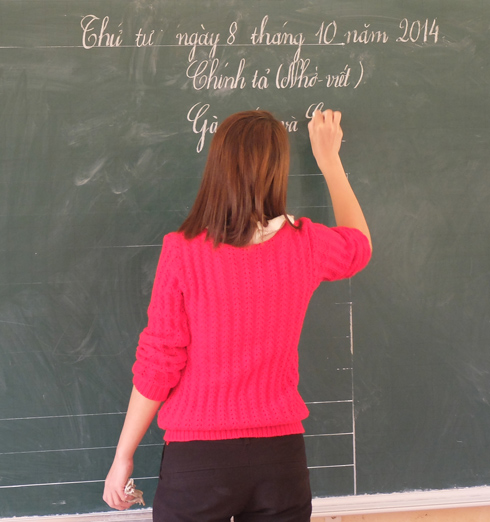 Thứ tư ngày 8 tháng 10 năm 2014
Chính tả (Nhớ-viết)
Gà và